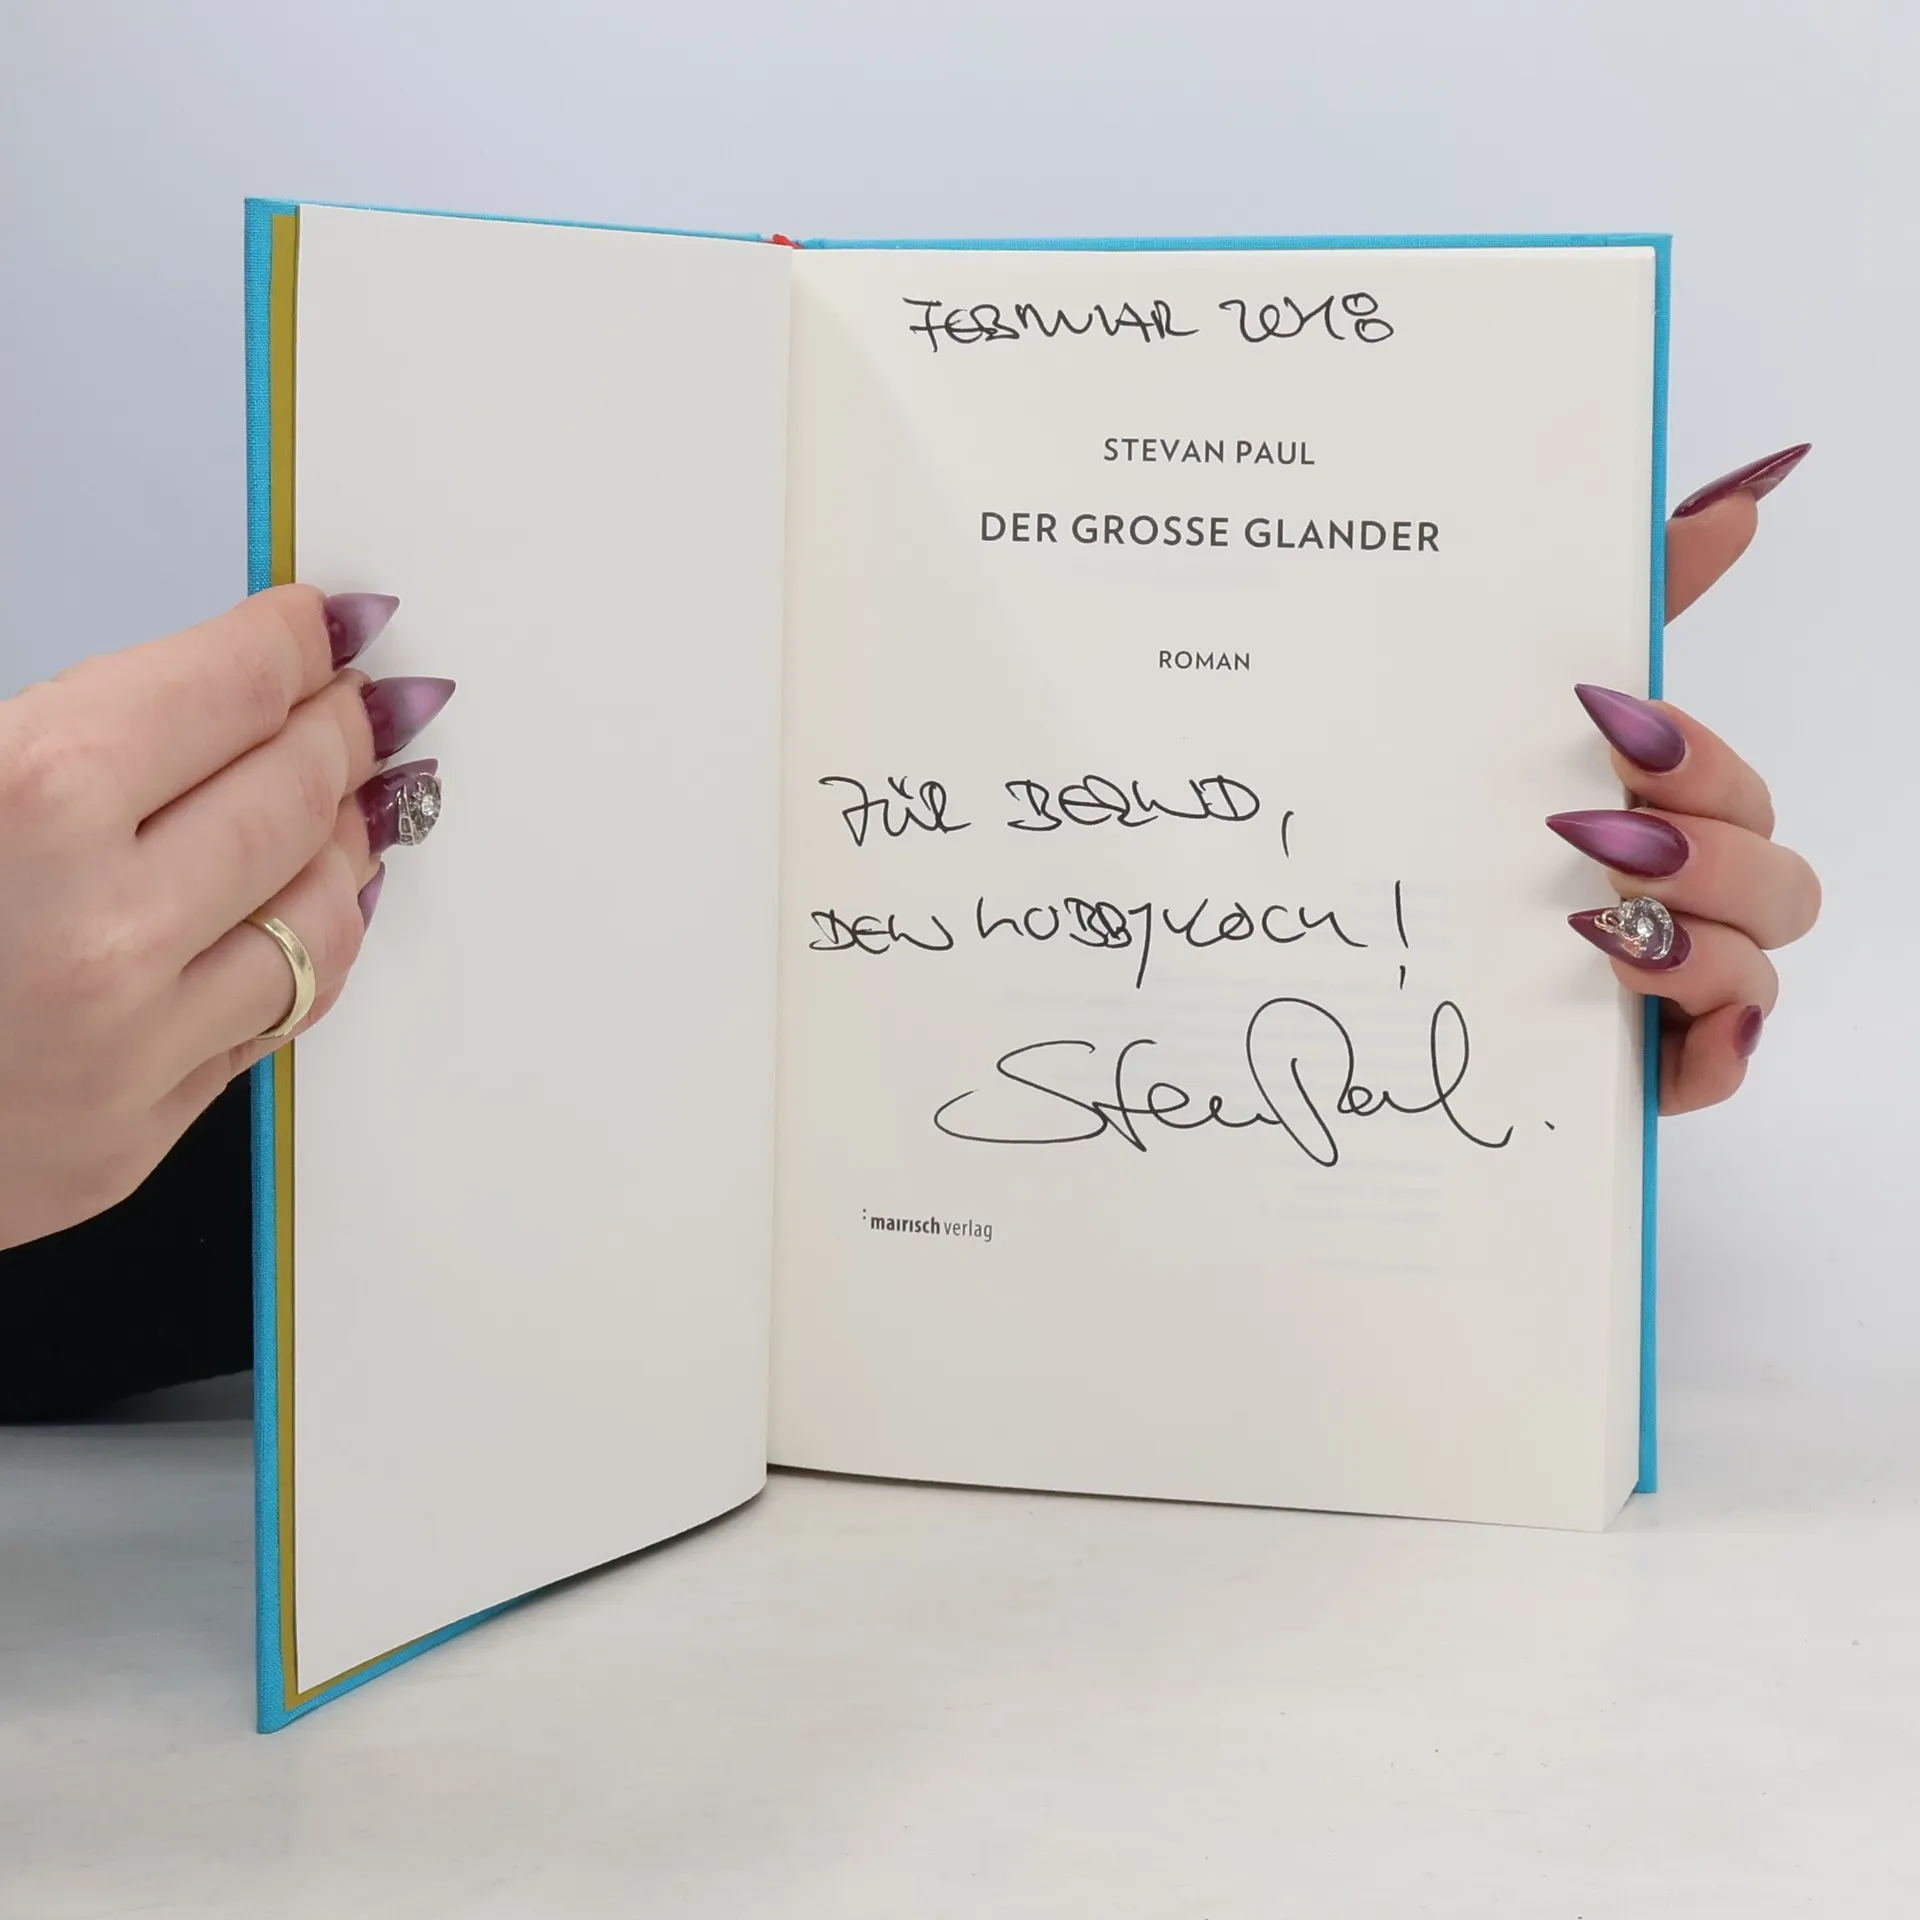 FEBRUAR 2018
STEVAN PAUL
DER GROSSE GLANDER
ROMAN
FÜR BERND,
DEN HOBBYKOCH!
Stevan Paul.
:mairisch verlag